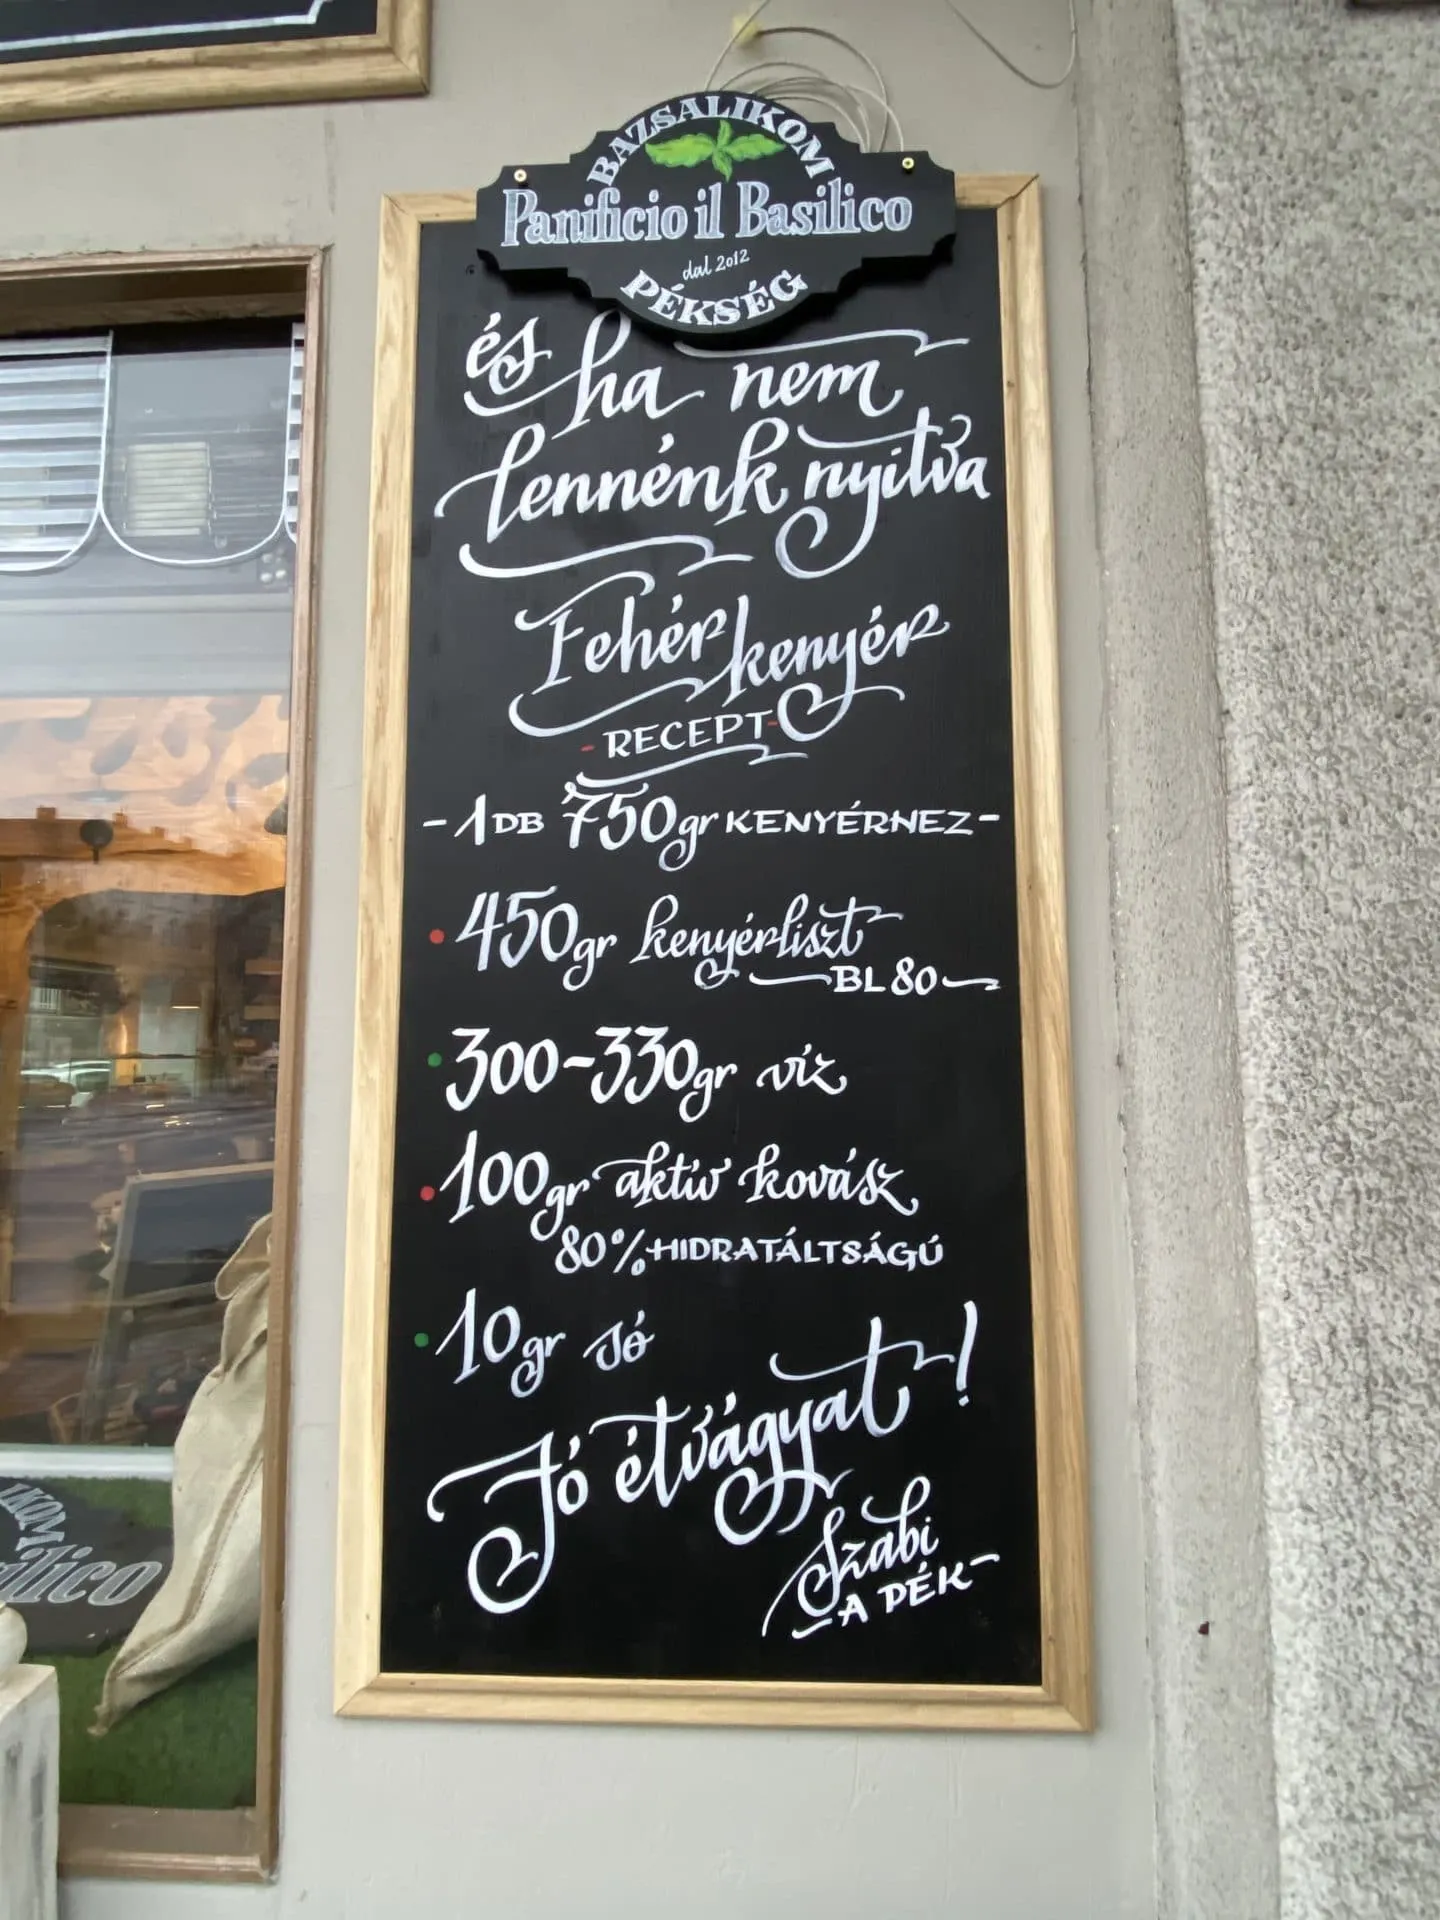 BAZSALIKOM
Panificio il Basilico
dal 2012
PÉKSÉG
és ha nem
lennénk nyitva
Fehér kenyér
- RECEPT -
- 1 DB 750gr KENYÉRHEZ -
• 450gr kenyérliszt
BL 80
• 300-330gr víz
• 100gr aktív kovász
80% HIDRATÁLTSÁGÚ
• 10gr só
Jó étvágyat!
Szabi
- A PÉK -
IKOM
ilico